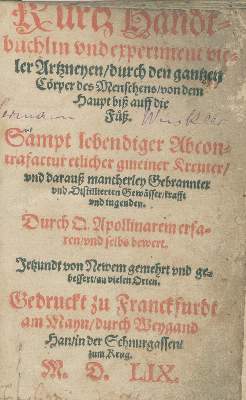 Kurtz Handt-
büchlin vnd experiment vie-
ler Artzneyen/durch den gantzen
Cörper des Menschens/von dem
Haupt biß auff die
Füß.
Sampt lebendiger Abcon-
trafactur etlicher gmeiner Kreuter/
vnd darauß mancherley Gebrannter
vnd Distillierten Gewässer/krafft
vnd tugenden.
Durch Q. Apollinarem erfa-
ren/vnd selbs bewert.
Jetzundt von Newem gemehrt vnd ge-
bessert/an vielen Orten.
Gedruckt zu Franckfurdt
am Mayn/durch Weygand
Han/in der Schnurgassenn
zum Krug.
M. D. LIX.